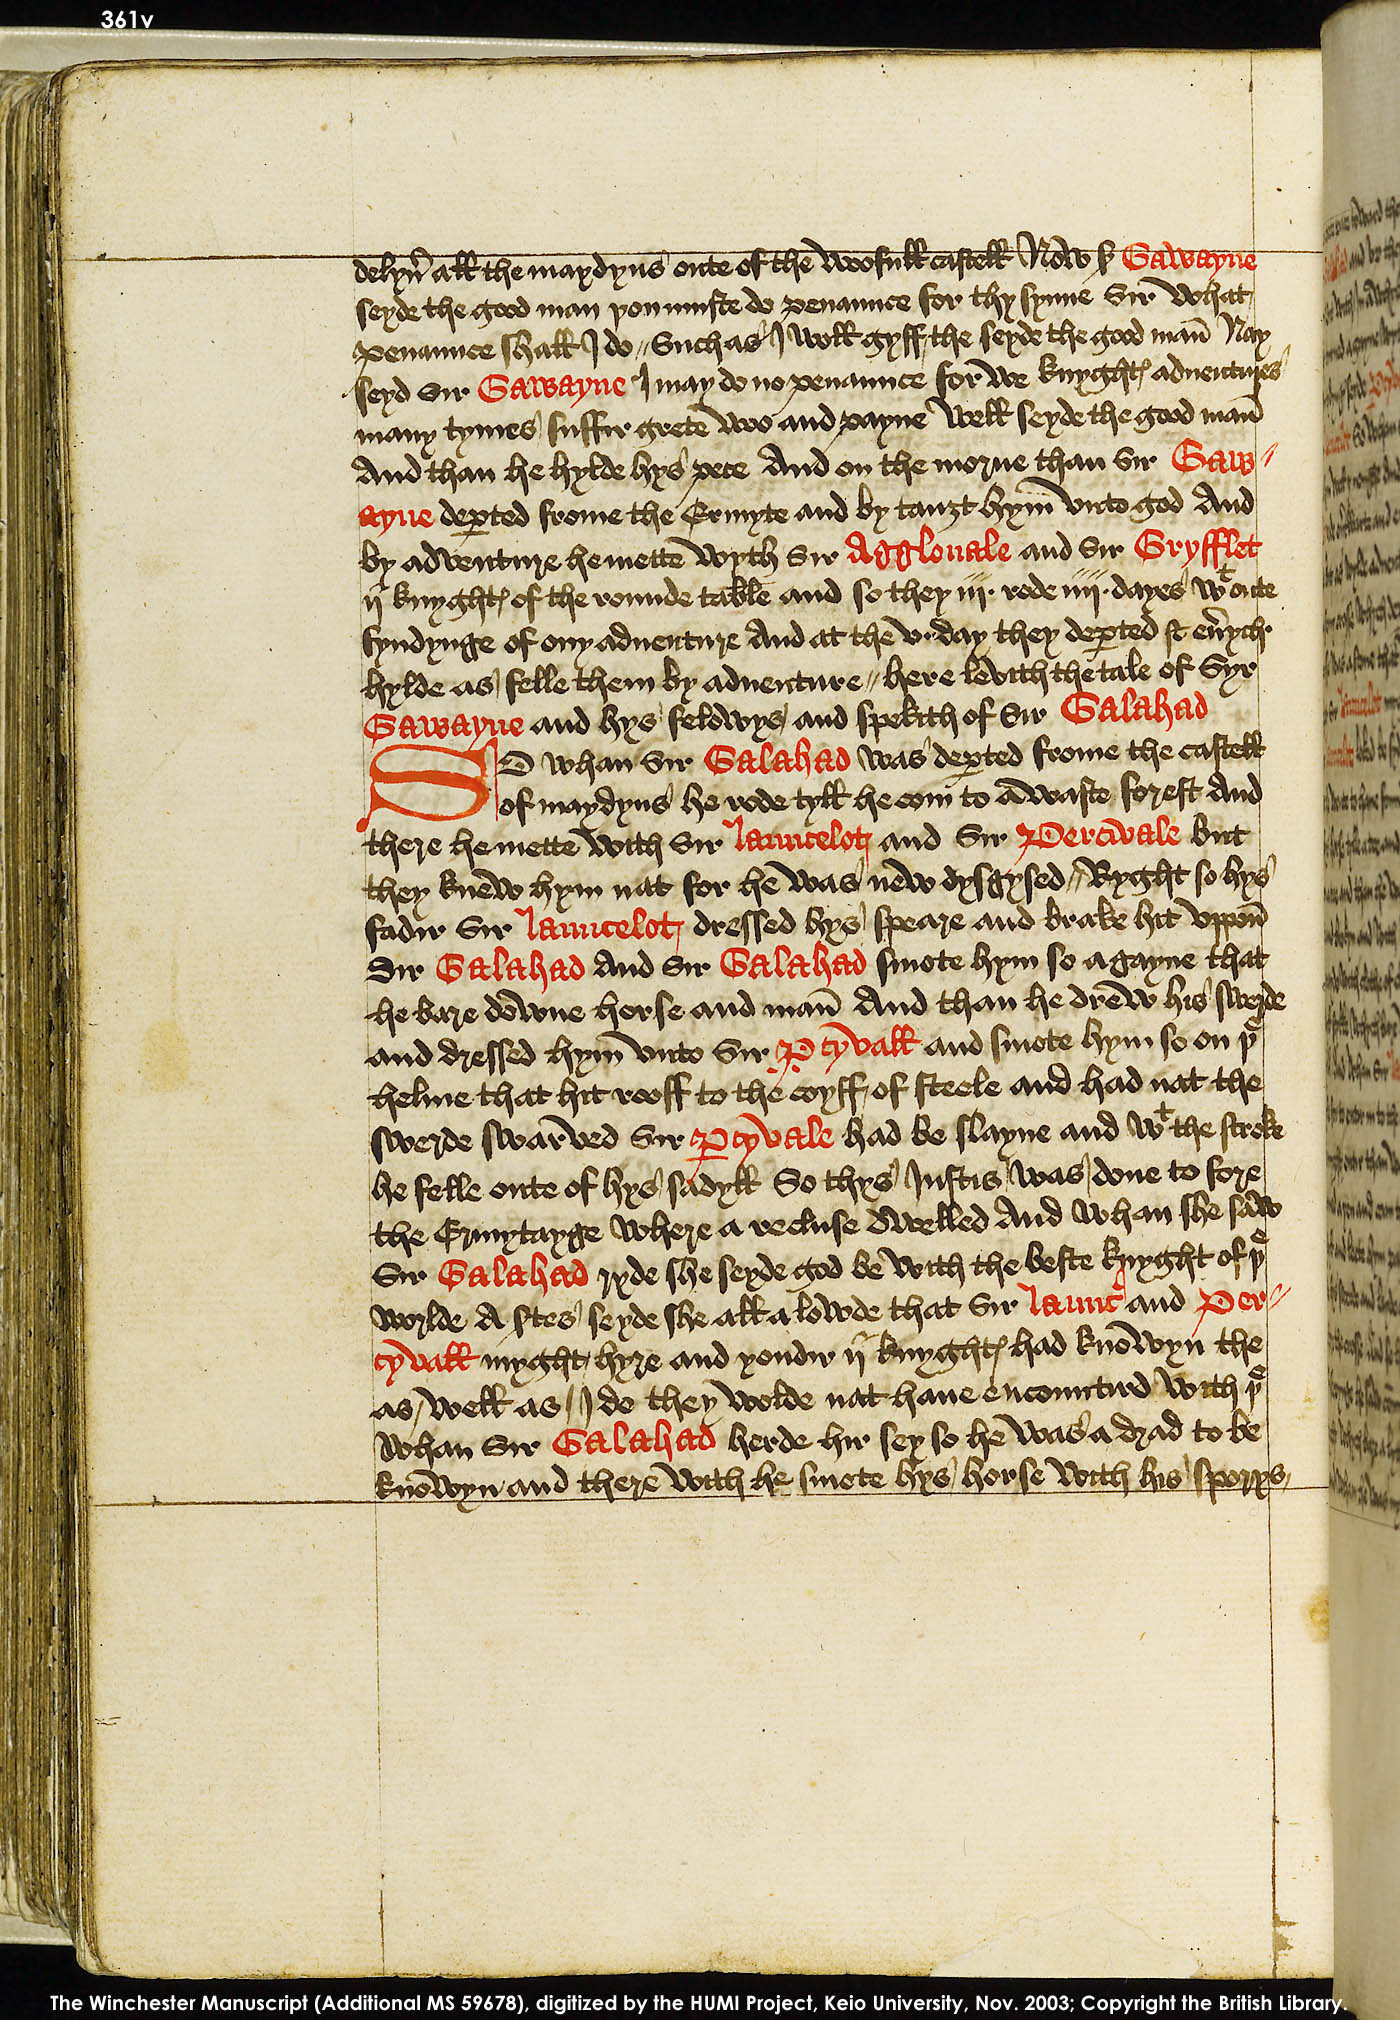 361v
delyu͛ all the maydyns oute of the woofull castell Now ß Gawayne
seyde the good man you muste do penaunce for thy synne Sir what
penaunce shall I do // Such as I woll gyff the seyde the good man̄ Nay
seyd Sir Gawayne I may do no penaunce for we knyghtꝭ adventures
many tymes suffir grete woo and payne Well seyde the good man̄
And than he hylde hys pece And on the morne than Sir Gaw //
ayne deꝑted frome the Ermyte and by tauȝt hym̄ vnto god And
by adventure he mette wyth Sir Agglouale and Sir Gryfflet
ij knyghtꝭ of the rounde table and so they iij. rode iiij. dayes wᵗ oute
fyndynge of ony adventure And at the v. day they deꝑted & eu͛ych
hylde as felle them by adventure // here levith the tale of Syr
Gawayne and hys felowys and spekith of Sir Galahad
SO whan Sir Galahad was deꝑted frome the castell
of maydyns he rode tyll he com to a waste forest And
there he mette with Sir launcelot and Sir Percivale but
they knew hym nat for he was new dysgysed // Ryght so hys
fadir Sir launcelot dressed hys speare and brake hit vppon̄
Sir Galahad And Sir Galahad smote hym so agayne that
he bare downe horse and man̄ And than he drew his swerde
and dressed hym̄ vnto Sir ꝑcyvall and smote hym so on þᵉ
helme that hit rooff to the coyff of steele and had nat the
swerde swarved Sir ꝑcyvale had be slayne and wᵗ the stroke
he felle oute of hys sadyll So thys Justis was done to fore
the Ermytayge where a recluse dwelled And whan she saw
Sir Galahad ryde she seyde god be with the beste knyght of þᵉ
worlde A ſtes seyde she all a lowde that Sir launc͛ and Per //
cyvall myght hyre and yondir ij knyghtꝭ had knowyn the
as well as I do they wolde nat haue encountird with þᵉ
whan Sir Galahad herde hir sey so he was adrad to be
knowyn and there with he smote hys horse with his sporys
The Winchester Manuscript (Additional MS 59678), digitized by the HUMI Project, Keio University, Nov. 2003; Copyright the British Library.